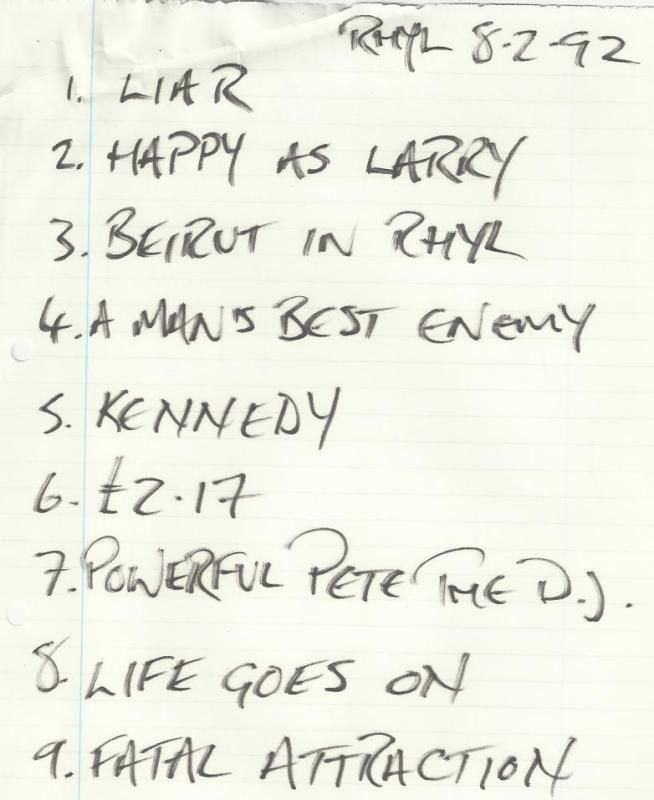 RHYL 8-2-92
1. LIAR
2. HAPPY AS LARRY
3. BEIRUT IN RHYL
4. A MAN'S BEST ENEMY
5. KENNEDY
6. £2.17
7. POWERFUL PETE THE D.J.
8. LIFE GOES ON
9. FATAL ATTRACTION